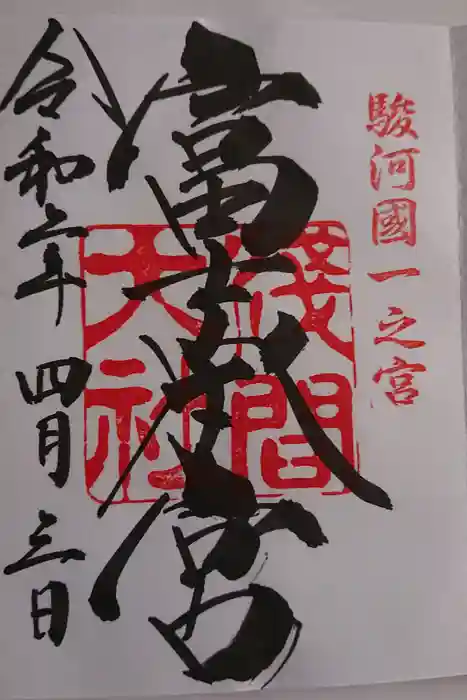 駿河國一之宮
富士本宮
淺間
大社
令和六年四月三日